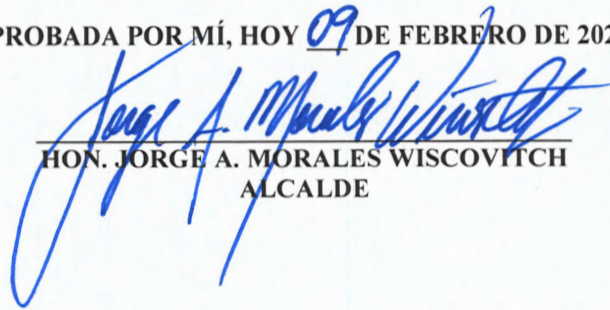 PROBADA POR MÍ, HOY 09 DE FEBRERO DE 202
Jorge A. Morales Wiscovitch
HON. JORGE A. MORALES WISCOVITCH
ALCALDE